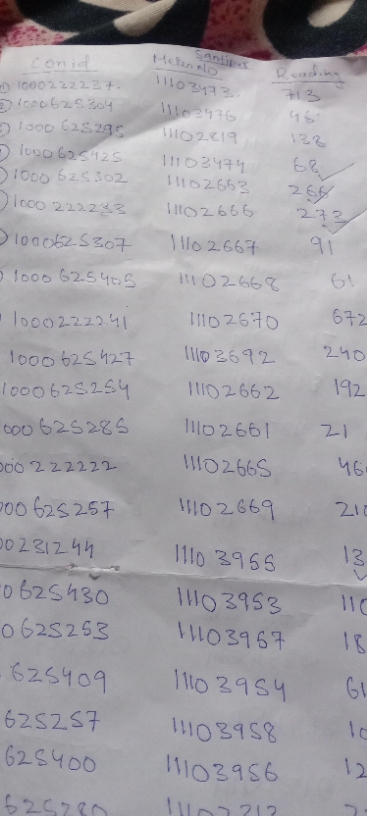 Conid Meter No Santipur Reading
1) 1000222237. 11103473. 713
2) 1000625304 11103476 46
1000625295 11102819 138
1000625425 11103474 68
1000625302 11102663 266
1000222233 11102666 273
1000625307 11102667 91
1000625405 11102668 61
1000222241 11102670 672
1000625427 11103692 240
1000625254 11102662 192
000625285 11102661 21
000222222 11102665 46
000625257 11102669 210
00231244 11103955 13
0625430 11103953 110
0625253 11103957 18
625409 11103954 61
625257 11103958 10
625400 11103956 12
625280